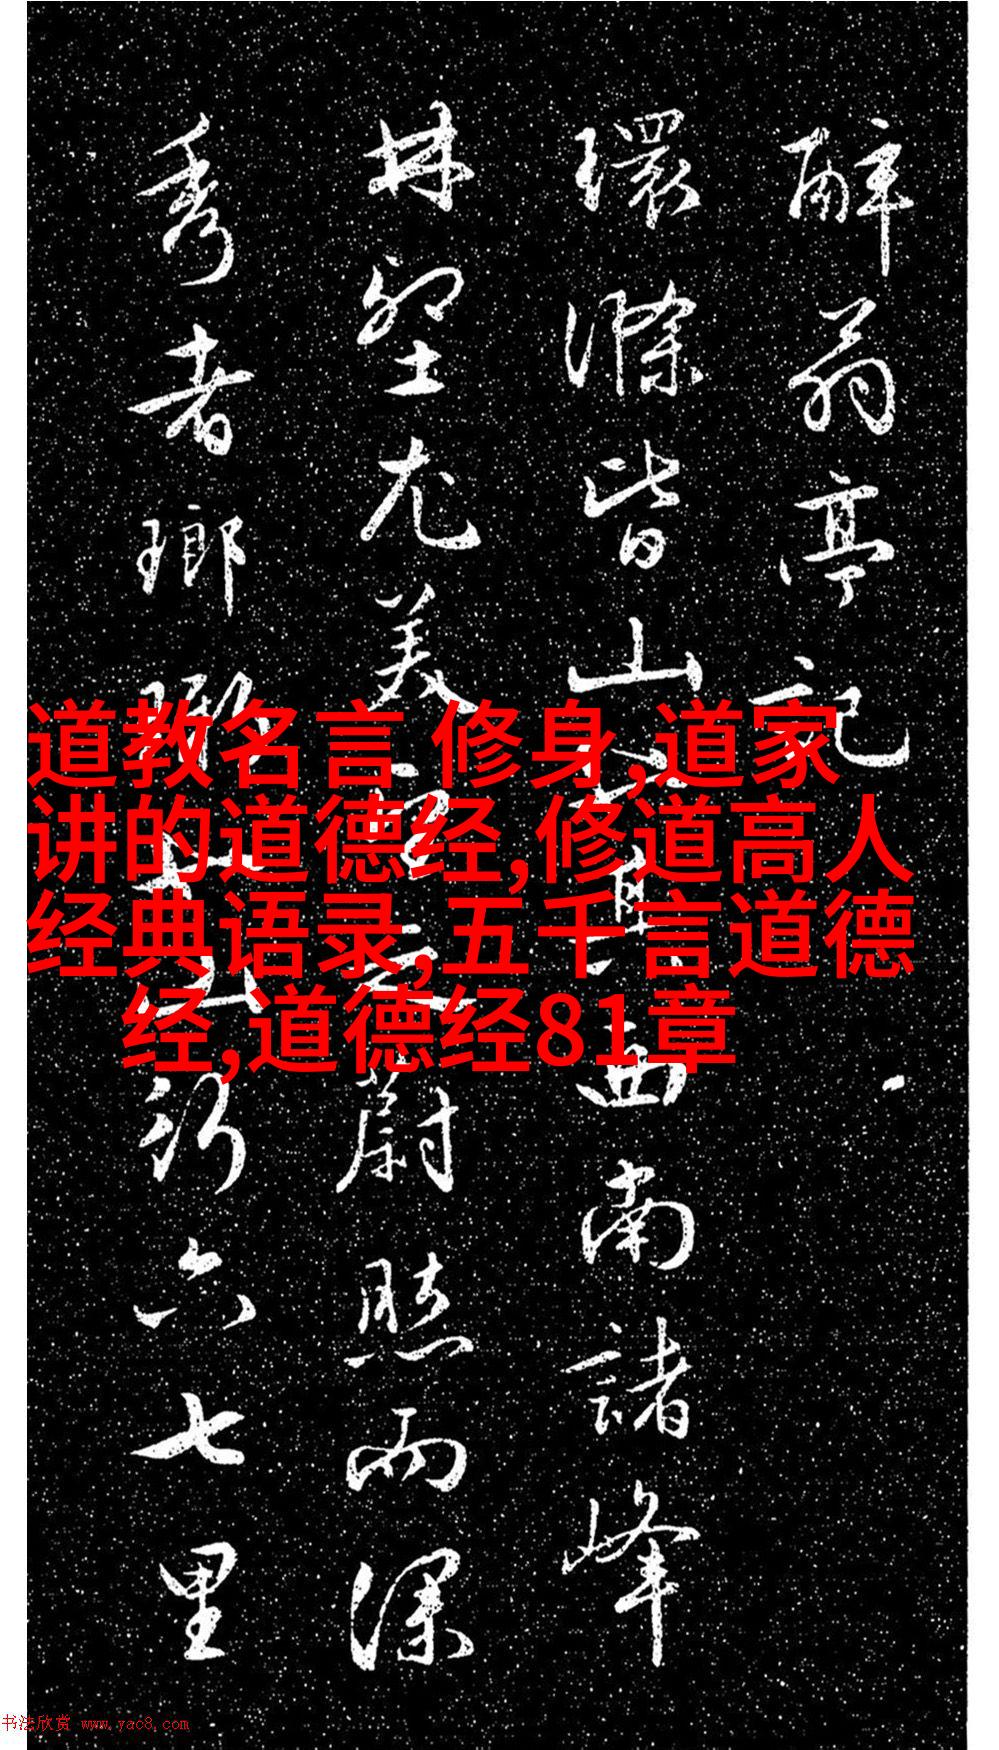 醉翁亭記
環滁皆山也其西南諸峰
林壑尤美望之蔚然而深
秀者瑯琊也山行六七里
道教名言 修身,道家
讲的道德经,修道高人
经典语录,五千言道德
经,道德经81章
书法欣赏 www.yac8.com